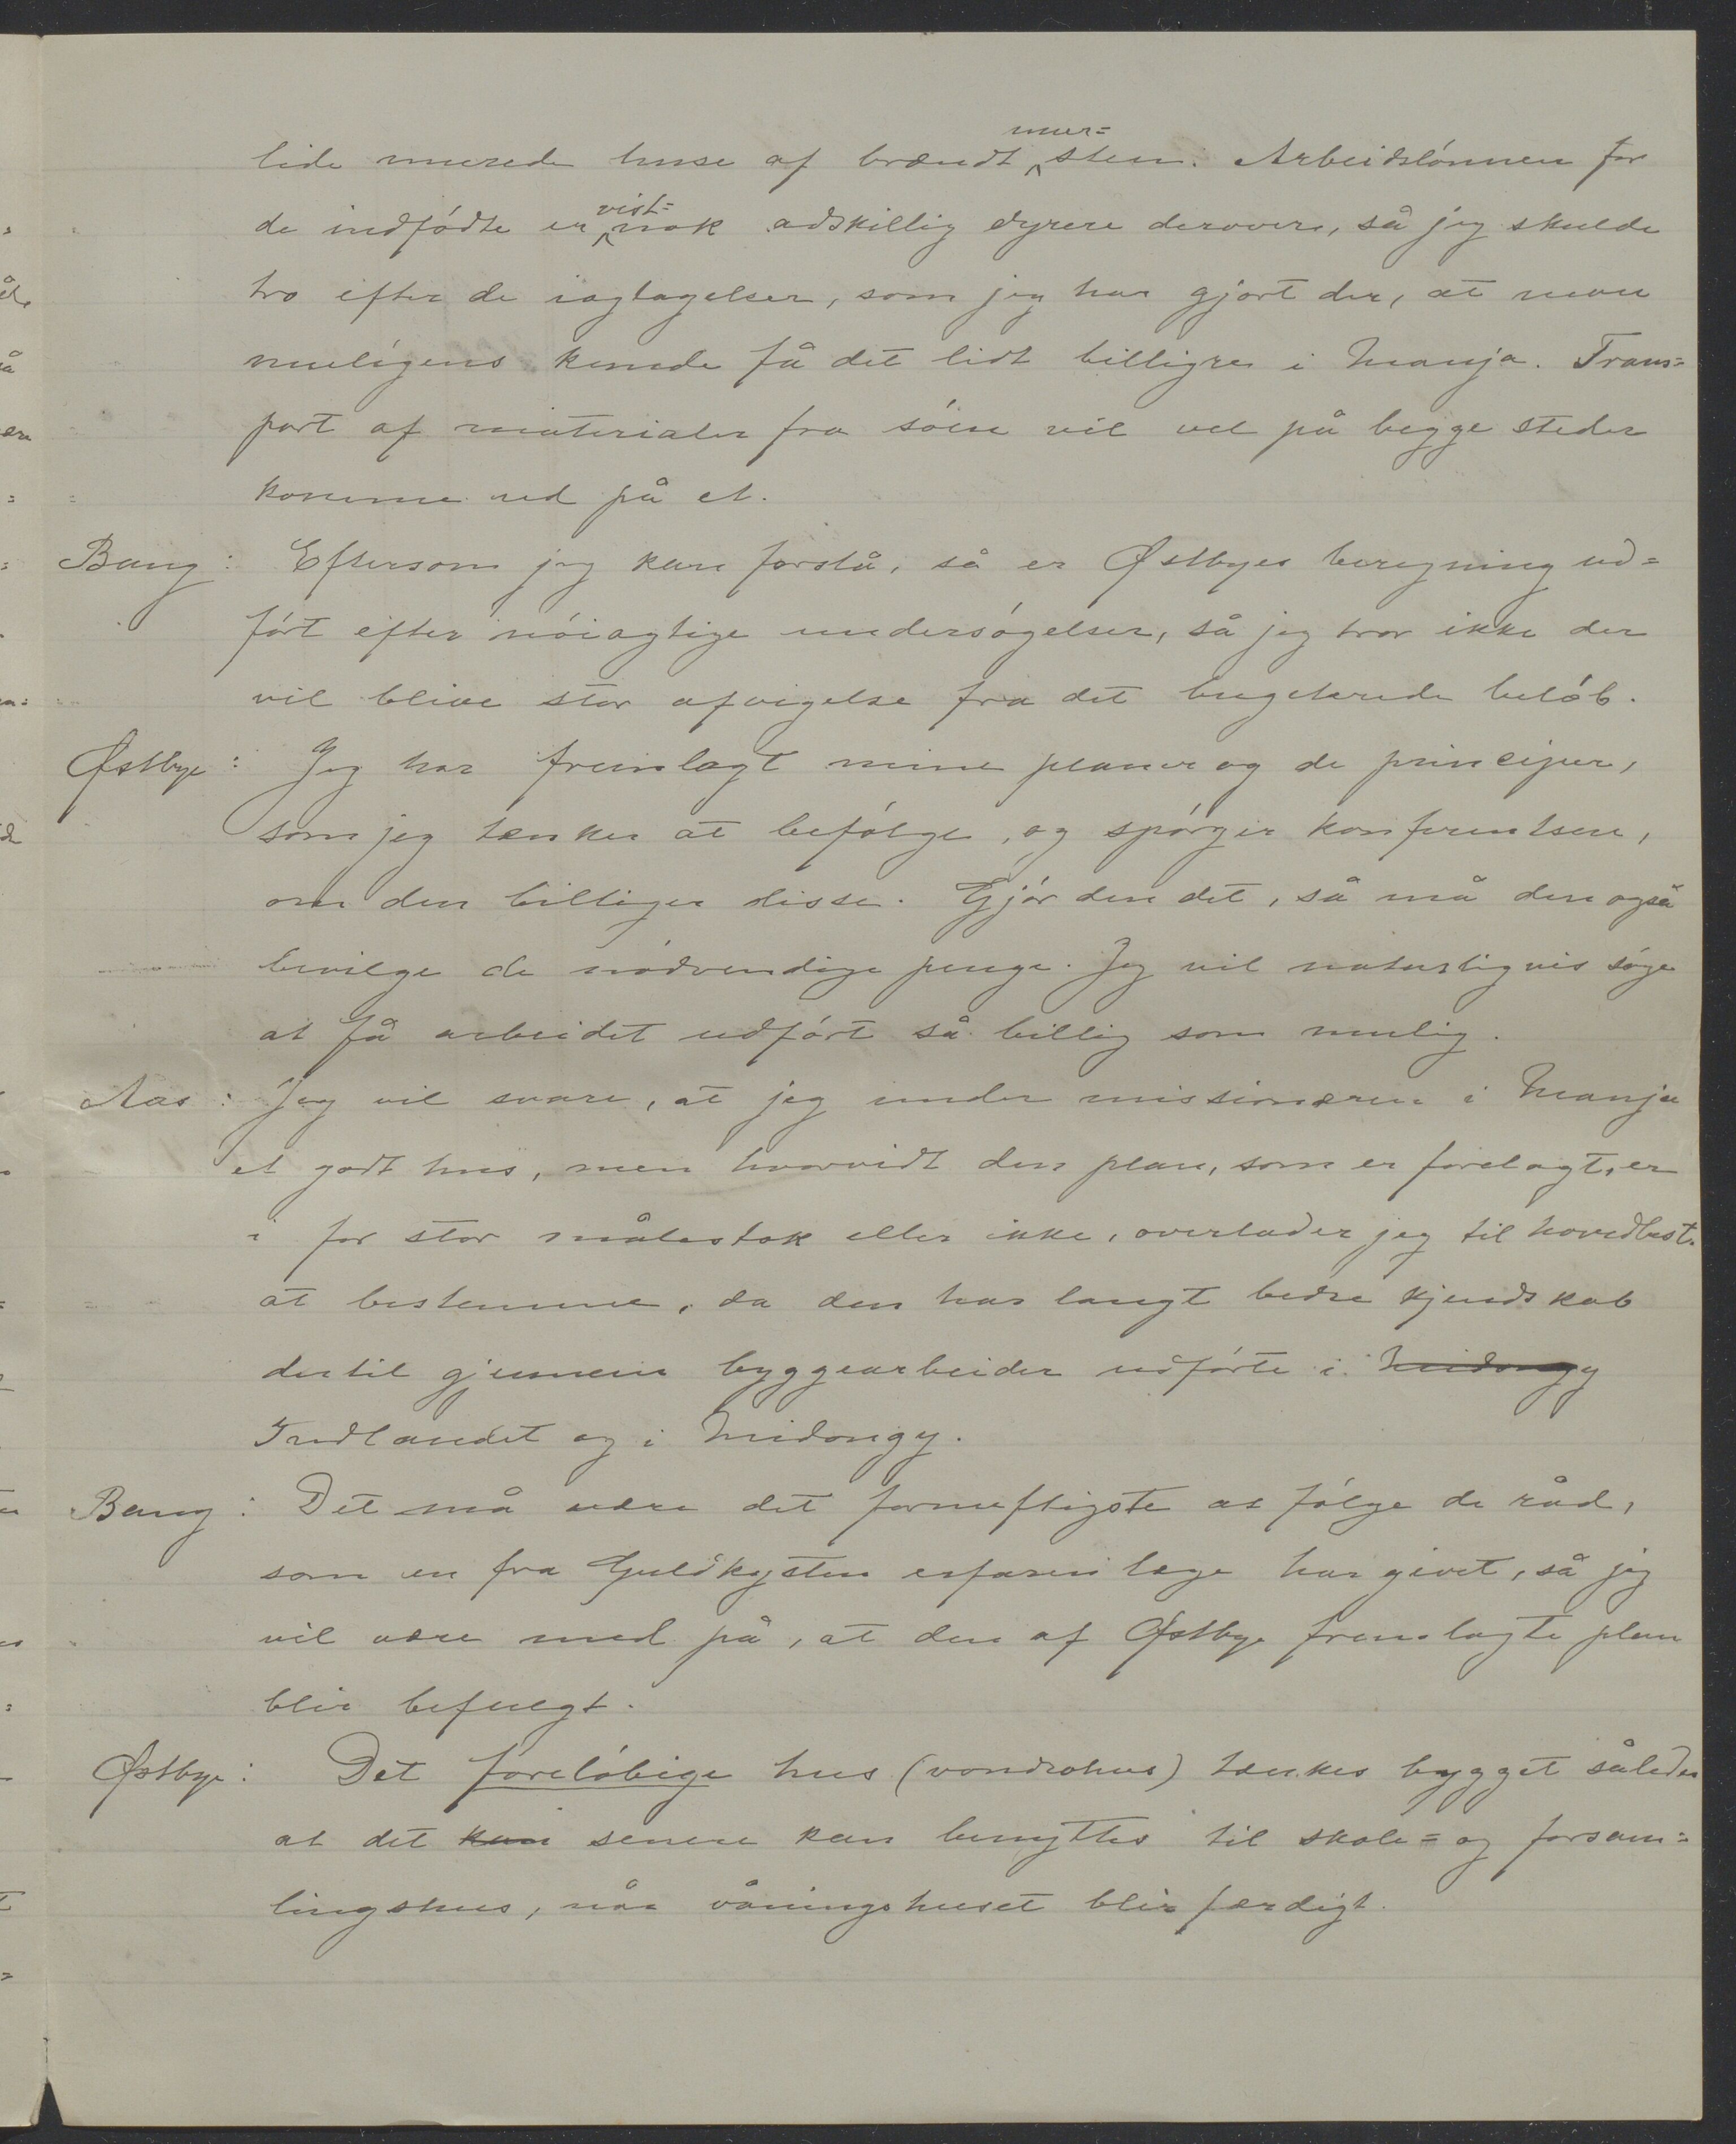 lide murede huse af brændt mur=sten. Arbeidslønnen for
de indfødte er vist=nok adskillig dyrere derovere, så jeg skulde
tro efter de iagtagelser, som jeg har gjort der, at man
muligens kunde få det lidt billigre i Manja. Trans=
port af materialer fra søen vil vel på begge steder
komme ud på et.
Bang: Eftersom jeg kan forstå, så er Østbyes beregning ud=
ført efter nøiagtige undersøgelser, så jeg tror ikke der
vil blive stor afvigelse fra det bugeterede beløb.
Østbye: Jeg har fremlagt mine planer og de principer,
som jeg tænker at befølge, og spørger konferentsen,
om den billiger disse. Gjør den det, så må den også
bevilge de nødvendige penge. Jeg vil naturligvis søge
at få arbeidet udført så billig som mulig.
Aas: Jeg vil svare, at jeg under missionæren i Manja
et godt hus, men hvorvidt den plan, som er forelagt, er
i for stor målestok eller ikke, overlader jeg til hovedbest.
at bestemme, da den har langt bedre kjendskab
dertil gjennem byggearbeider udførte i Midongy
Indlandet og i Midongy.
Bang: Det må være det fornuftigste at følge de råd,
som en fra Guldkysten erfaren læge har givet, så jeg
vil være med på, at den af Østbye fremlagte plan
blir befulgt.
Østbye: Det foreløbige hus (vondrohus) tænkes bygget således
at det kan senere kan benyttes til skole= og forsam=
lingshus, når våningshuset blir færdigt.